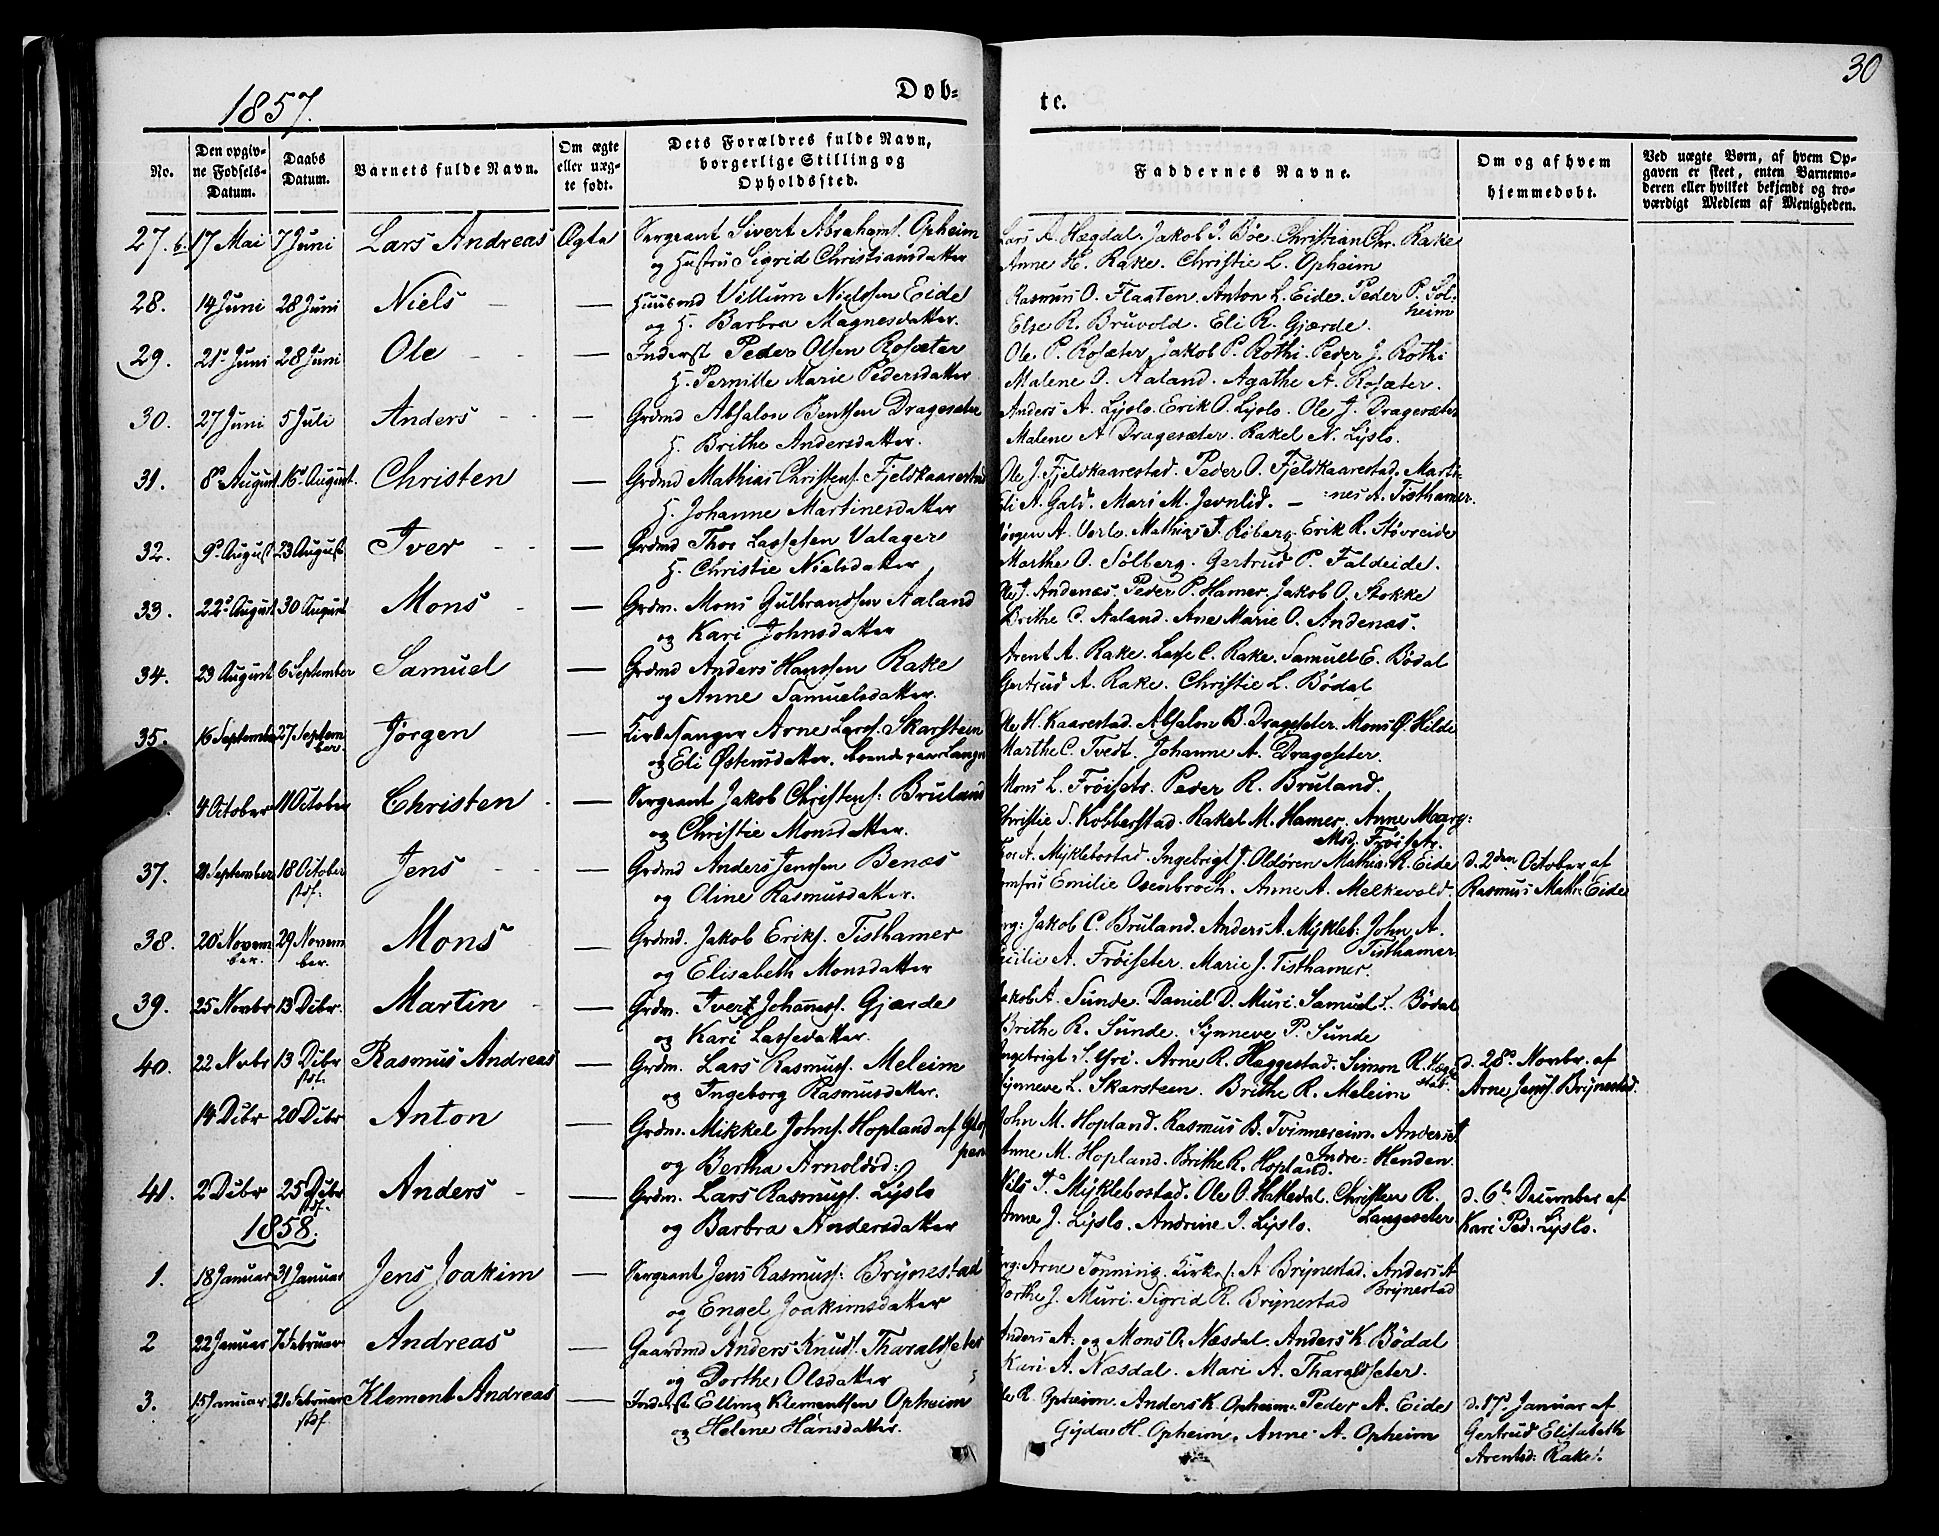 1857. Dob- te. 30
No. | Den opgivne Fødsels-Datum. | Daabs Datum. | Barnets fulde Navn. | Om ægte eller uægte født. | Dets Forældres fulde Navn, borgerlige Stilling og Opholdssted. | Faddernes Navne. | Om og af hvem hjemmedøbt. | Ved uægte Børn, af hvem Opgaven er skeet, enten Barnemoderen eller hvilket bekjendt og troværdigt Medlem af Menigheden.
27. b. 17 Mai 7 Juni Lars Andreas Ægte Sergeant Sivert Abrahams. Opheim Lars A. Hægdal. Jakob J. Bøe. Christian Chr. Rake
og Hustru Sigrid Christiansdatter Anne H. Rake. Christie L. Opheim
28. 14 Juni 28 Juni Niels - — Huusmd Villum Nielssen Eide Rasmus O. Flaaten. Anton L. Eide. Peder P. Solheim
og H. Barbra Magnesdatter. Else R. Bruvold. Eli R. Gjærde.
29. 21de Juni 28 Juni Ole - - — Inderst Peder Olsen Rosæter Ole P. Rosæter. Jakob P. Rothi. Peder J. Rothi
H. Pernille Marie Pedersdatter Malene O. Aaland. Agathe A. Rosæter.
30. 27 Juni 5 Juli Anders - - — Grdmd Absalon Bentsen Dragesæter Anders A. Lyslo. Erik O. Lyslo. Ole J. Dragesæter
H. Brithe Andersdatter. Malene A. Dragesæter. Rakel N. Lyslo.
31. 8de August 16de August. Christen — Grdmd Mathias Christens. Fjeldkaarestad Ole J. Fjeldkaarestad. Peder O. Fjeldkaarestad. Marti-
H. Johanne Martinesdatter Eli A. Gald. Mari M. Jevnlid. — :nes A. Tisthamer.
32. 9de August 23 August Iver - - — Grdmd Thor Lassesen Valager Jørgen A. Verlo. Mathias T. Røberg. Erik R. Støvreide
H. Christie Nielsdatter Marthe O. Solberg. Gertrud P. Faldeide.
33. 22de August 30 August Mons - — Grdm. Mons Gulbrandsen Aaland Ole J. Andenæs. Peder P. Hamer. Jakob O. Stokke
og Kari Johnsdatter Brithe C. Aaland. Ane Marie O. Andenæs.
34. 29 August 6 September Samuel — Grdmd Anders Hanssen Rake Arent A. Rake. Lasse C. Rake. Samuel E. Bødal
og Anne Samuelsdatter. Gertrud A. Rake. Christie L. Bødal
35. 16 September 27 September Jørgen — Kirkesanger Arne Larss. Skarsteen Ole H. Kaarestad. Absalon B. Dragesæter. Mons O. Hilde
og Eli Østensdatter. boende paa Marthe C. Tvedt. Johanne A. Dragesæter.
4 October 11 October Christen - — Sergeant Jakob Christens: Bruland Mons L. Frøisetr. Peder R. Bruland.
og Christie Monsdatter. Christie S. Kobberstad. Rakel M. Hamer. Anne Marg: Msd. Frøisetr.
37. 21 September 18 October stdf. Jens - - — Grdmd Anders Jenssen Benæs Thor A. Myklebostad. Ingebrigt J. Oldøren. Mathias R. Eide d. 2den October af
og Oline Rasmusdatter. Jomfru Emilie Osenbroch. Anne A. Melkevold. Rasmus Math: Eide
38. 20 November. 29 November. Mons — Grdmd. Jakob Eriks. Tisthamer Serg: Jakob C. Bruland. Anders A. Mykleb: John A. Tisthamer
og Elisabeth Monsdatter Cecilie A. Frøiseter. Marie J. Tisthamer.
39. 25 Novbr 13 Decbr. Martin - — Grdm. Ivert Johanness. Gjærde Jakob A. Sunde. Daniel D. Muri. Samuel S. Bødal
og Kari Lassedatter. Brithe R. Sunde. Synneve P. Sunde
40. 22 Novbr 13 Decbr stdf. Rasmus Andreas — Grdm. Lars Rasmuss. Meleim Ingebrigt S. Yri. Arne R. Heggestad. Simon R. d. 28de Novbr. af
og Ingeborg Rasmusdatter. Synneve L. Skarsteen. Brithe R. Meleim Arne Jenss. Brynestad.
14 Decbr 20 Decbr Anton — Grdm. Mikkel Johns. Hopland af Gloppen John M. Hopland. Rasmus B. Tvinnereim. Anders A
og Bertha Arnoldsd: Anne M. Hopland. Brithe R. Hopland. Indre-Henden.
41. 2 Decbr 25 Decbr stdf. Anders - — Grdm. Lars Rasmuss. Lyslo Nils T. Myklebostad. Ole O. Hakledal. Christen R. Langeseter d. 6te December af
og Barbra Andersdatter Anne J. Lyslo. Andrine I. Lyslo. Kari Ped: Lyslo.
1858.
1. 18 Januar 31 Januar Jens Joakim — Sergeant Jens Rasmuss: Brynestad Serg: Arne Tønning. Kirkes. A Brynestad. Anders A Brynestad
og Engel Joakimsdatter Dorthe J. Muri. Sigrid R. Brynestad
2 22 Januar 7 Februar Andreas — Gaardmd Anders Knuds. Tharaldseter Anders A. og Mons A. Næsdal. Anders K. Bødal
og Dorthe Olsdatter Kari A. Næsdal. Mari A. Tharaldseter.
3. 15 Januar 21 Februar stdf. Klement Andreas — Inderst Elling Klementsen Opheim Ole R. Opheim. Anders K. Opheim. Peder A. Eide d. 17de Januar af
og Helene Hansdatter. Gyda H. Opheim. Anne A. Opheim Gertrud Elisabeth
Arentsd: Rake.